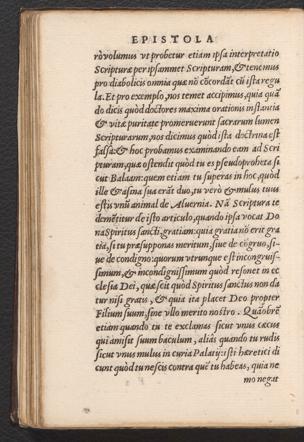 EPISTOLA
rò volumus vt probetur etiam ipsa interpretatio
Scripturæ per ipsammet Scripturam, & tenemus
pro diabolicis omnia quæ nō cōcordāt cū ista regu
la. Et pro exemplo, nos temet accipimus, quia quā
do dicis quòd doctores maxima orationis instantia
& vitæ puritate promeruerunt sacrarum lumen
Scripturarum, nos dicimus quòd ista doctrina est
falsa: & hoc probamus examinando eam ad Scri
pturam, quæ ostendit quòd tu es pseudopropheta si
cut Balaam: quem etiam tu superas in hoc, quòd
ille & asina sua erāt duo, tu verò & mulus tuus
estis vnū animal de Aluernia. Nā Scriptura te
demētitur de isto articulo, quando ipsa vocat Do
na Spiritus sancti, gratiam: quia gratia nō erit gra
tia, si tu præsupponas meritum, siue de cōgruo, si-
ue de condigno: quorum vtrunque est incongruis-
simum, & incondignissimum quòd resonet in ec
clesia Dei, quæ scit quòd Spiritus sanctus non da
tur nisi gratis, & quia ita placet Deo propter
Filium suum, sine vllo merito nostro. Quāobrē
etiam quando tu te exclamas sicut vnus cæcus
qui amisit suum baculum, aliàs quando tu rudis
sicut vnus mulus in curia Palatij: isti hæretici di
cunt quòd tu nescis contra quē tu habeas, quia ne
mo negat